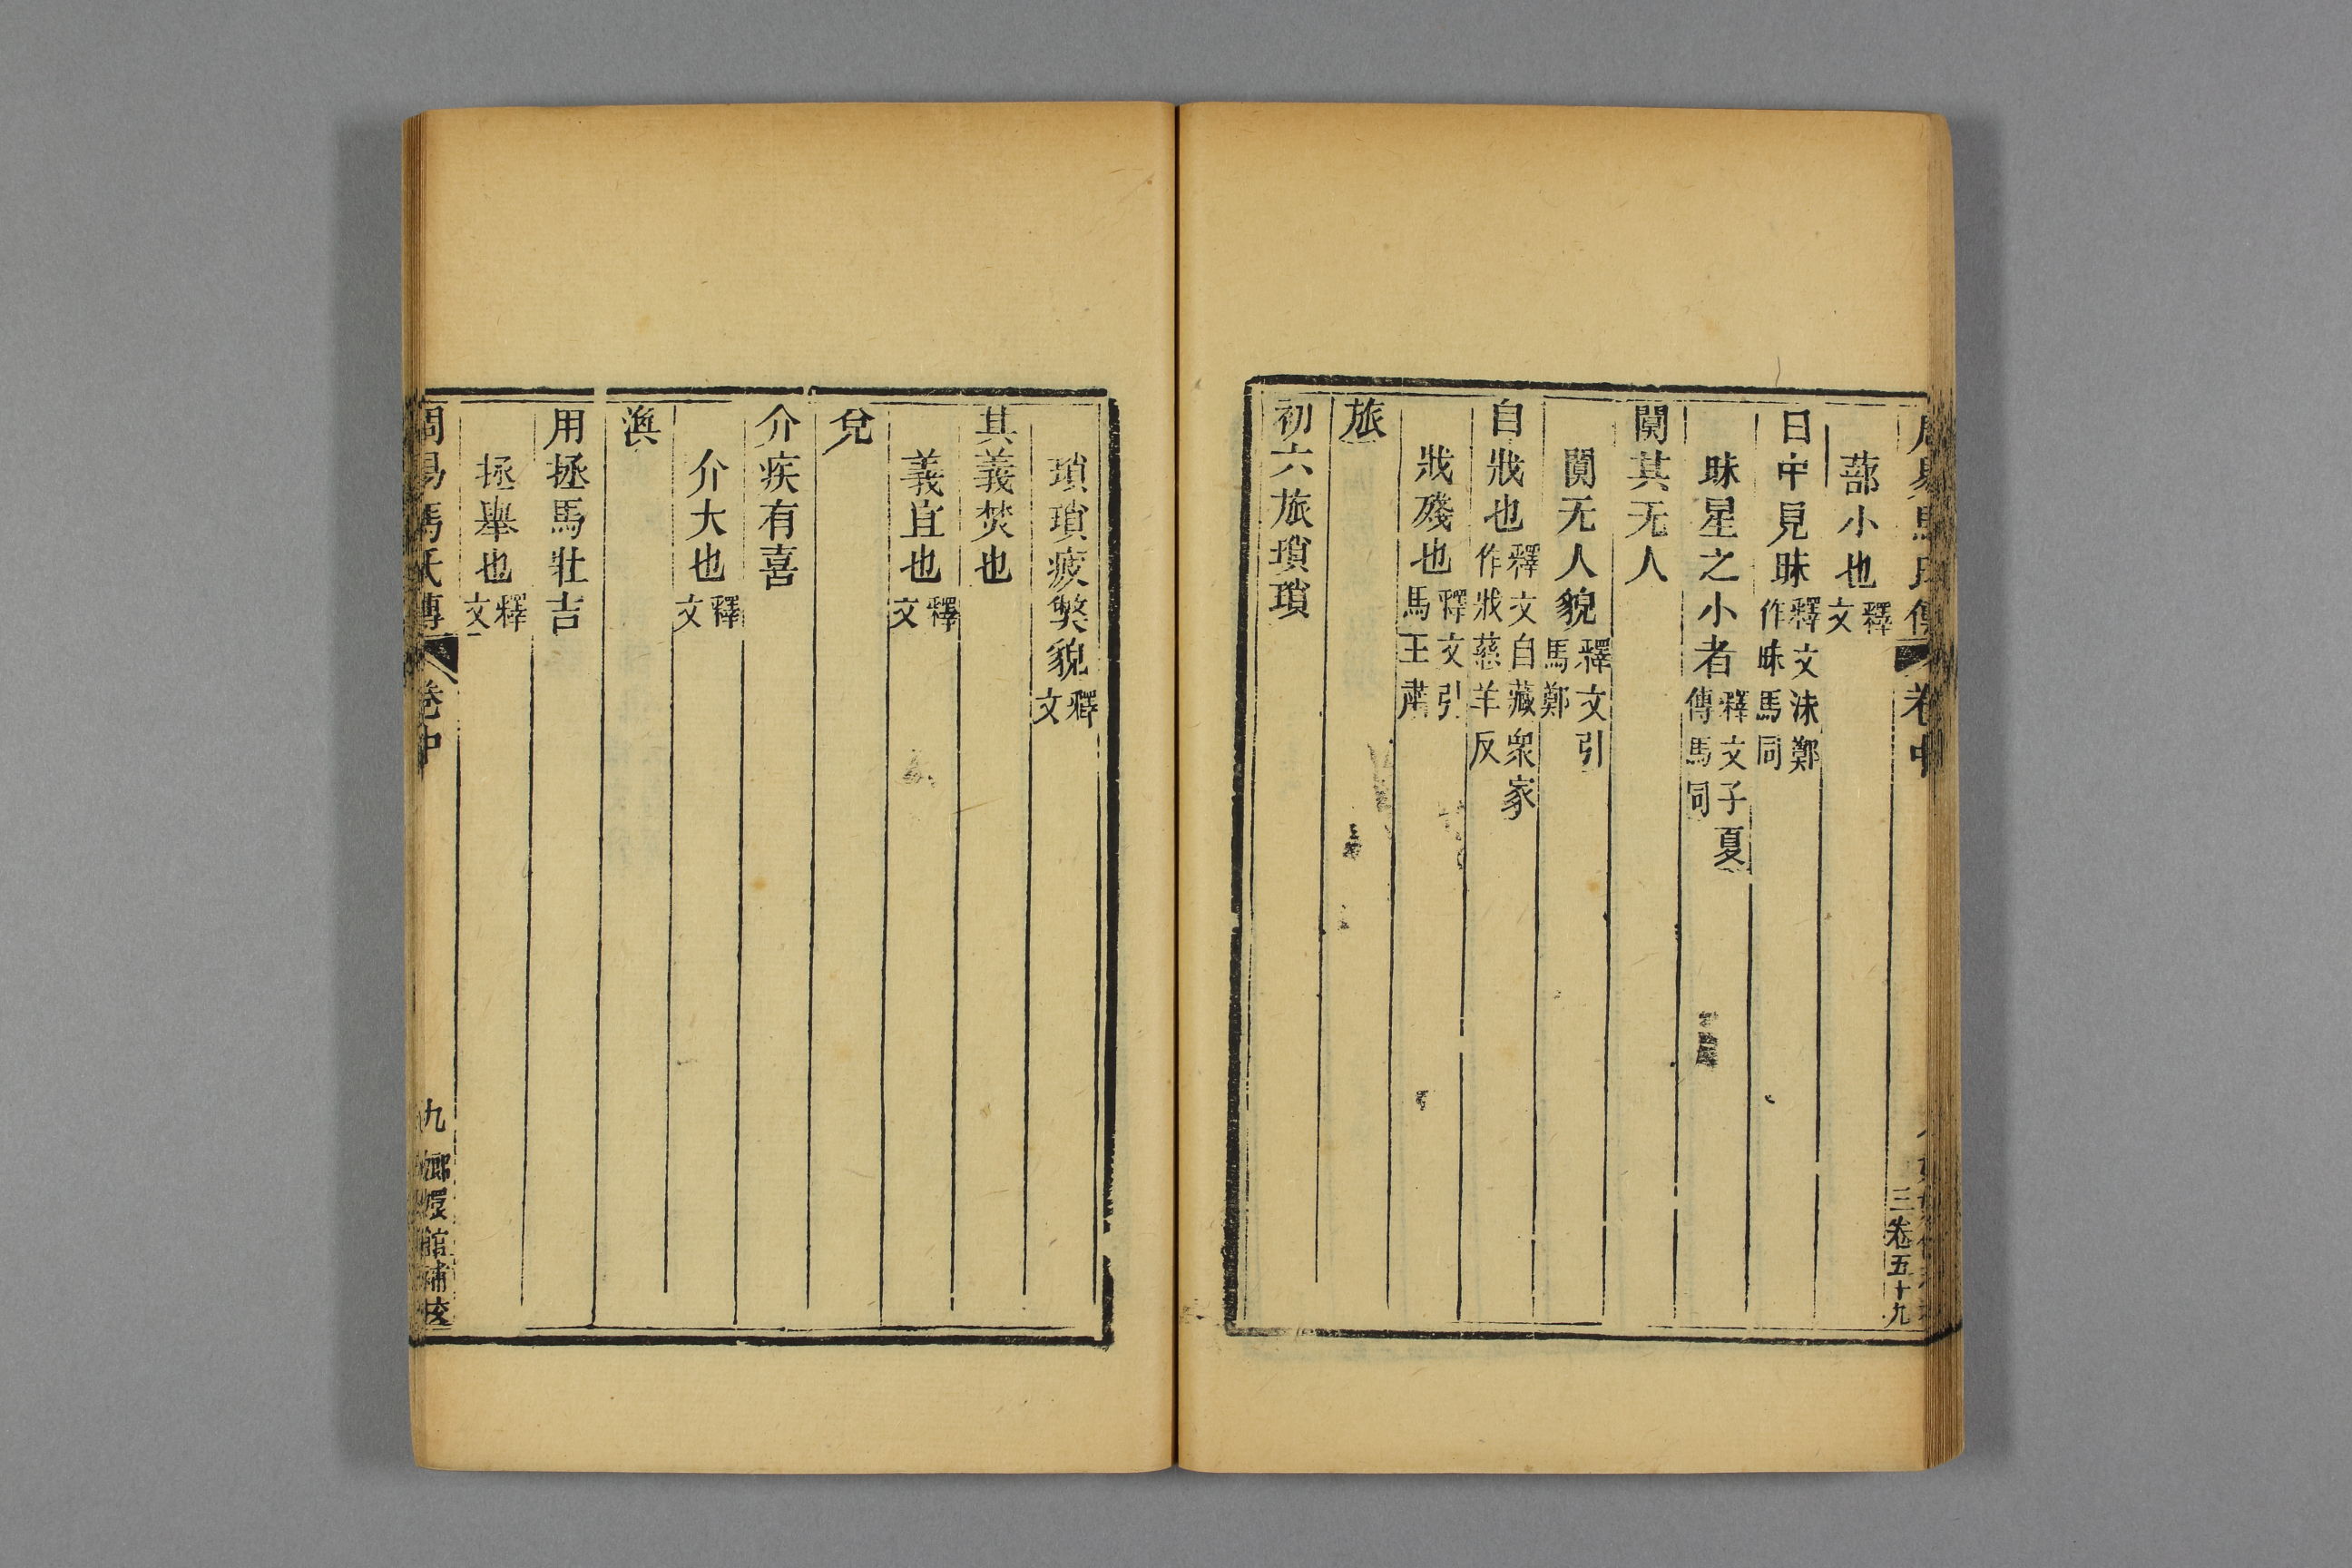 周易馬氏傳 卷中
三 卷五十九
蔀小也釋文
日中見昧釋文沬鄭作昧馬同
昧星之小者釋文子夏傳馬同
闃其无人
闃无人貌釋文引馬鄭
自戕也釋文自藏衆家作戕慈羊反
戕殘也釋文引馬王肅
旅
初六旅瑣瑣
瑣瑣疲弊貌釋文
其義焚也
義宜也釋文
兌
介疾有喜
介大也釋文
渙
用拯馬壯吉
拯舉也釋文
周易馬氏傳 卷中 九 嫏嬛館補校